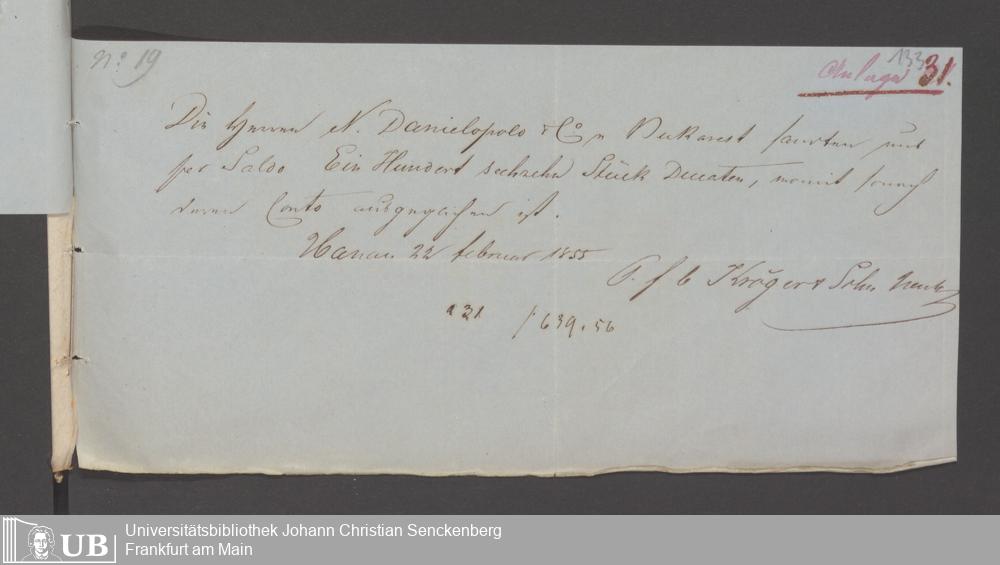 No 19
133
Anlage 31.
Die Herren N. Danielopolo & Co in Bukarest sandten mir
per Saldo Ein Hundert sechzehn Stück Ducaten, womit sonach
deren Conto ausgeglichen ist.
Hanau 22 Februar 1855
Kröger & Sohn
a 31 f 639.56
UB
Universitätsbibliothek Johann Christian Senckenberg
Frankfurt am Main